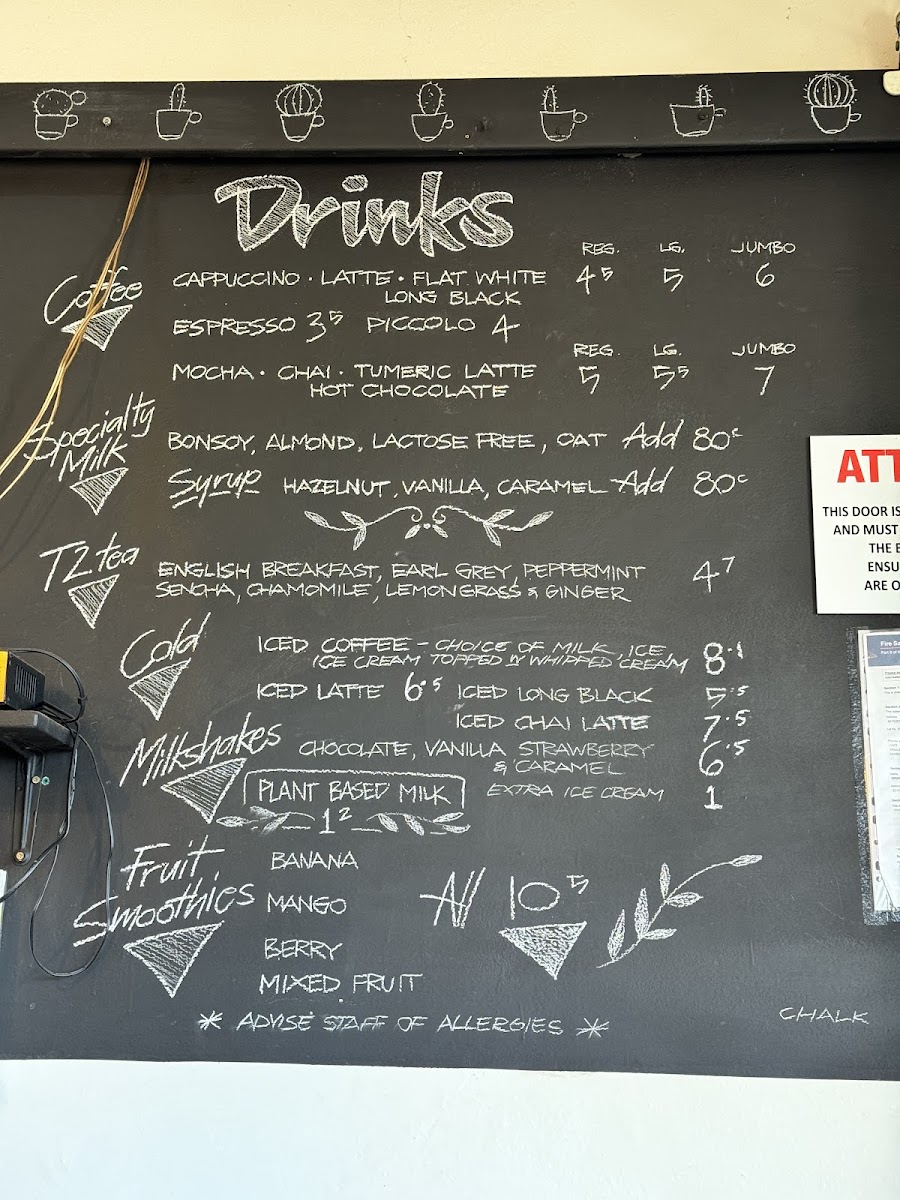 Drinks
REG. LG. JUMBO
Coffee
CAPPUCCINO · LATTE · FLAT WHITE 4⁵ 5 6
LONG BLACK
ESPRESSO 3⁵ PICCOLO 4
REG. LG. JUMBO
MOCHA · CHAI · TUMERIC LATTE 5 5⁵ 7
HOT CHOCOLATE
Specialty
Milk
BONSOY, ALMOND, LACTOSE FREE, OAT Add 80c
Syrup HAZELNUT, VANILLA, CARAMEL Add 80c
T2 tea
ENGLISH BREAKFAST, EARL GREY, PEPPERMINT 4⁷
SENCHA, CHAMOMILE, LEMONGRASS & GINGER
Cold
ICED COFFEE - CHOICE OF MILK, ICE,
ICE CREAM TOPPED W WHIPPED CREAM 8
ICED LATTE 6.5 ICED LONG BLACK 5.5
ICED CHAI LATTE 7.5
Milkshakes
CHOCOLATE, VANILLA STRAWBERRY 6.5
& CARAMEL
PLANT BASED MILK EXTRA ICE CREAM 1
1²
Fruit
Smoothies
BANANA
MANGO
BERRY
MIXED FRUIT
All 10⁵
* ADVISE STAFF OF ALLERGIES *
CHALK
ATT
THIS DOOR IS
AND MUST
THE
ENSU
ARE O
Fire Sa